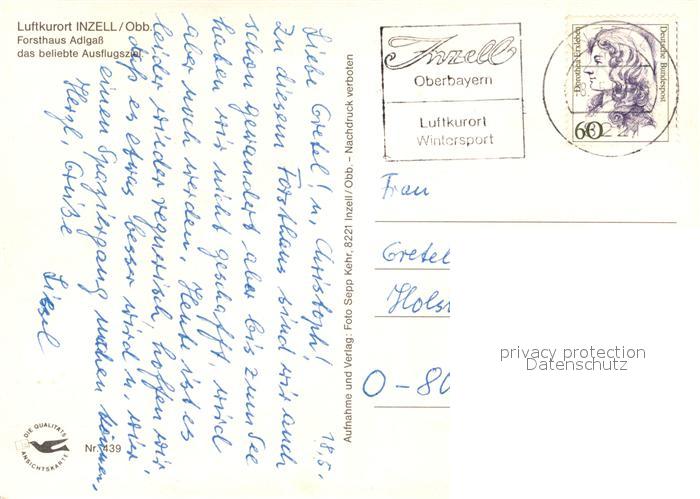 Luftkurort INZELL / Obb.
Forsthaus Adlgaß
das beliebte Ausflugsziel
18.5.
Liebe Gretel! u. Christoph!
Zu diesem Forsthaus sind wir auch
schon gewandert aber bis zum See
haben wir nicht geschafft, wird
aber noch werden. Heute ist es
leider wieder regnerisch, hoffen wir,
daß es etwas besser wird u. wir
einen Spaziergang machen können.
Herzl. Grüße
Liesel
DIE QUALITÄTS
ANSICHTSKARTE
Nr. 439
Aufnahme und Verlag: Foto Sepp Kehr, 8221 Inzell/Obb. – Nachdruck verboten
Inzell
Oberbayern
Luftkurort
Wintersport
Deutsche Bundespost
60
Frau
Gretel
O-80
privacy protection
Datenschutz